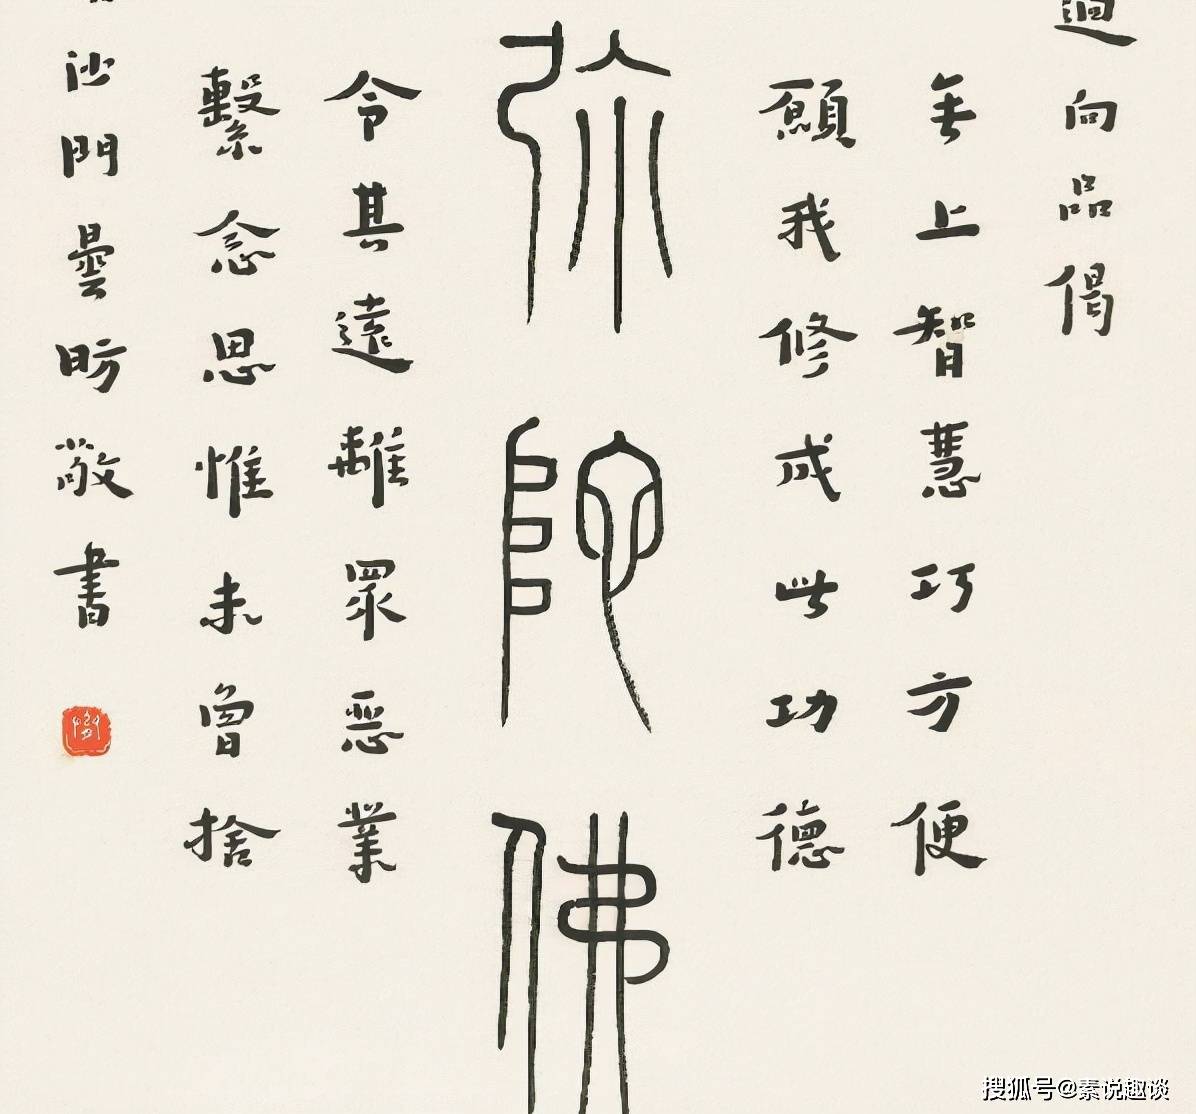 迴向品偈
無上智慧巧方便
願我修成此功德
弥陀佛
令其遠離眾惡業
繫念思惟未曾捨
沙門曇昉敬書
搜狐号@素说趣谈